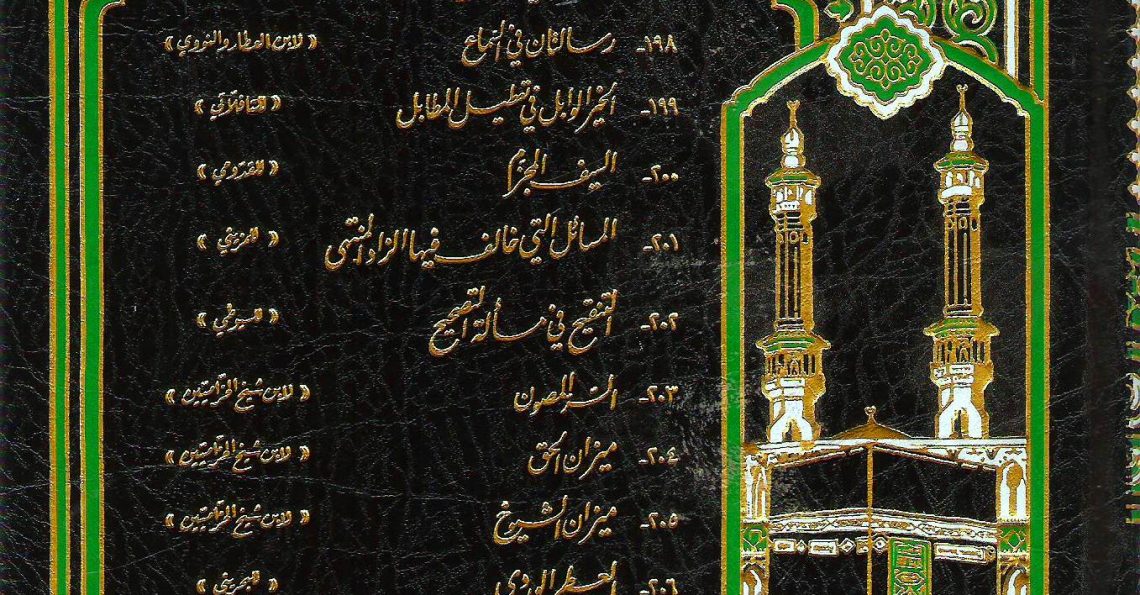 ١٩٨- رسالتان في السماع « لابن العطار والنووي »
١٩٩- الخير الوابل في تفضيل المطابل « للتافلاتي »
٢٠٠- السيف المجزم « للقدومي »
٢٠١- المسائل التي خالف فيها الزاد المنتهى « للمزيني »
٢٠٢- التنقيح في مسألة التصحيح « للسيوطي »
٢٠٣- السر المصون « لابن شيخ الحزاميين »
٢٠٤- ميزان الحق « لابن شيخ الحزاميين »
٢٠٥- ميزان الشيوخ « لابن شيخ الحزاميين »
٢٠٦- العطر الوردي